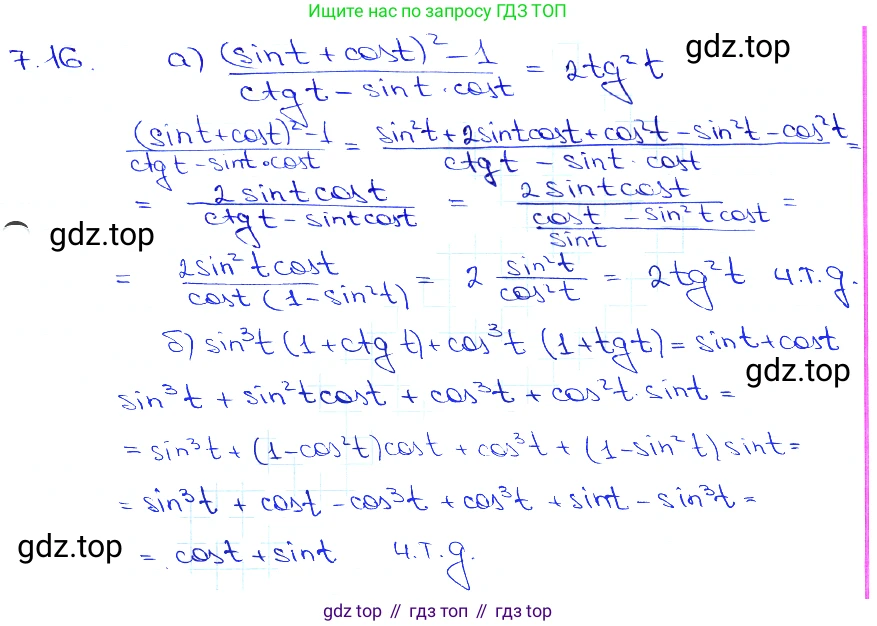 Ищите нас по запросу ГДЗ ТОП
7.16. а) (sint + cost)² - 1 / ctgt - sint · cost = 2tg²t gdz.top
(sint + cost)² - 1 / ctgt - sint · cost = sin²t + 2sintcost + cos²t - sin²t - cos²t / ctgt - sint · cost =
= 2sintcost / ctgt - sintcost = 2sintcost / cost - sin²tcost / sint =
gdz.top
= 2sin²tcost / cost(1 - sin²t) = 2 sin²t / cos²t = 2tg²t ч.т.д.
б) sin³t (1 + ctgt) + cos³t (1 + tgt) = sint + cost
gdz.top
sin³t + sin²tcost + cos³t + cos²t · sint =
= sin³t + (1 - cos²t)cost + cos³t + (1 - sin²t)sint =
= sin³t + cost - cos³t + cos³t + sint - sin³t =
gdz.top = cost + sint ч.т.д.
gdz top // гдз топ // gdz top